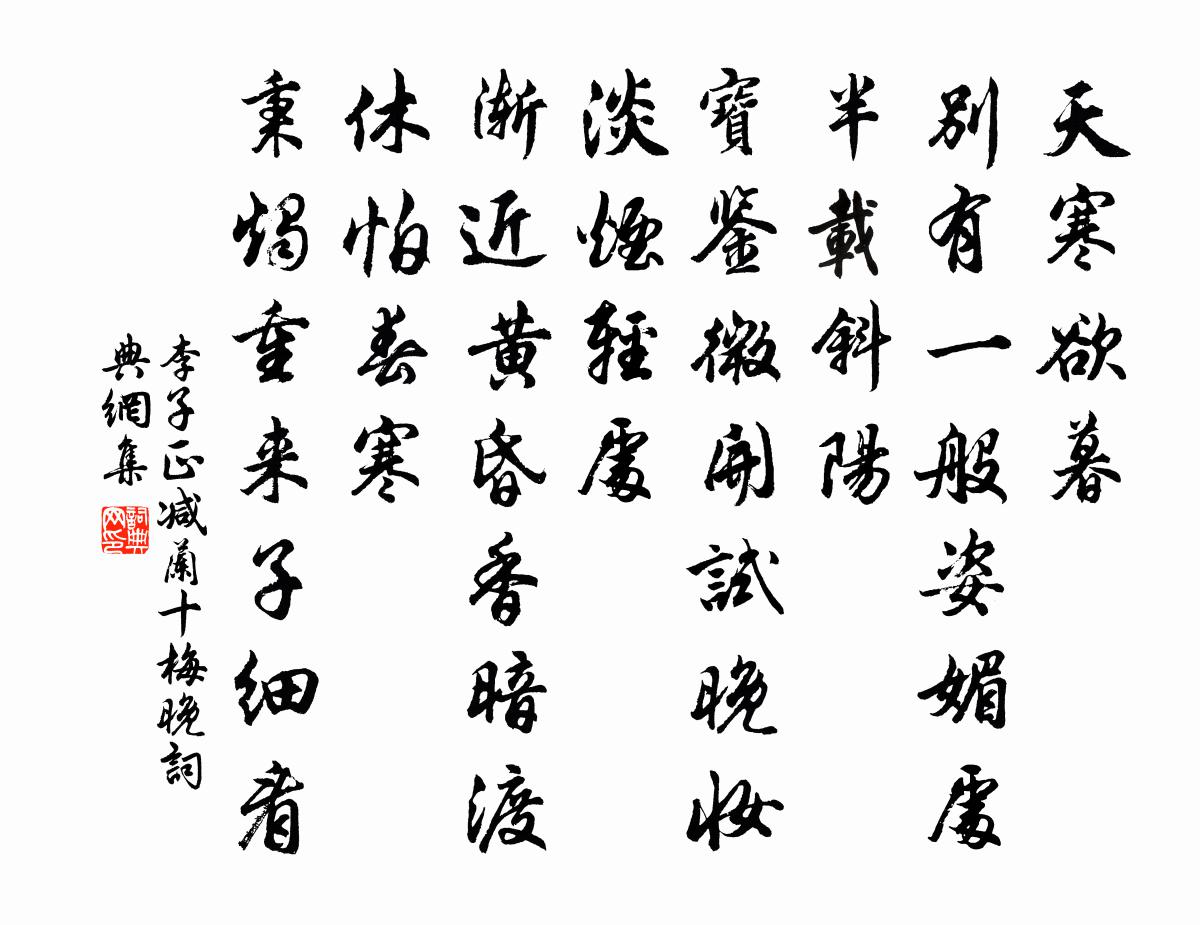 天寒欲暮
別有一般姿媚處
半載斜陽
寶鑒微開試晚妝
淡煙輕處
漸近黃昏香暗渡
休怕春寒
秉燭重来子細看
李子正减蘭十梅晚詞
典網集
詞典
网印